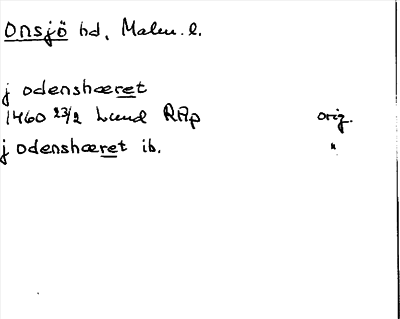 Onsjö hd, Malm. l.
j odenshæret
1460 23/2 Lund RAp orig.
j odenshæret ib. "